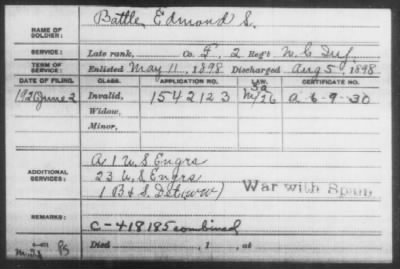 NAME OF SOLDIER: Battle, Edmond S.
SERVICE: Late rank, Co. F, 2 Reg't N.C. Inf.
TERM OF SERVICE: Enlisted May 11, 1898 Discharged Aug 5, 1898
DATE OF FILING. CLASS. APPLICATION NO. LAW. CERTIFICATE NO.
1926 June 2 Invalid, 1542123 A-6-9-30
Widow,
Minor,
ADDITIONAL SERVICES: A 1 U.S. Engrs
23 U.S. Engrs
1 B & S. Det (WW)
War with Spain
REMARKS: C-418185 combined
Died , 1 , at